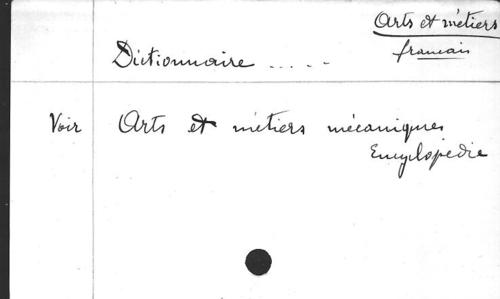 Arts et métiers
français
Dictionnaire .....
Voir Arts et métiers mécaniques
Encyclopédie